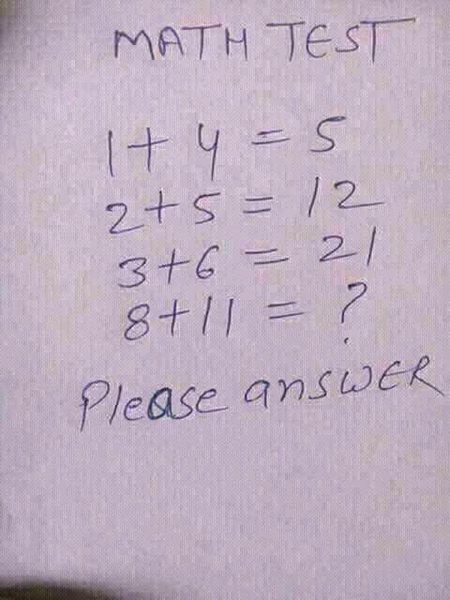 MATH TEST
1+4=5
2+5=12
3+6=21
8+11=?
Please answER